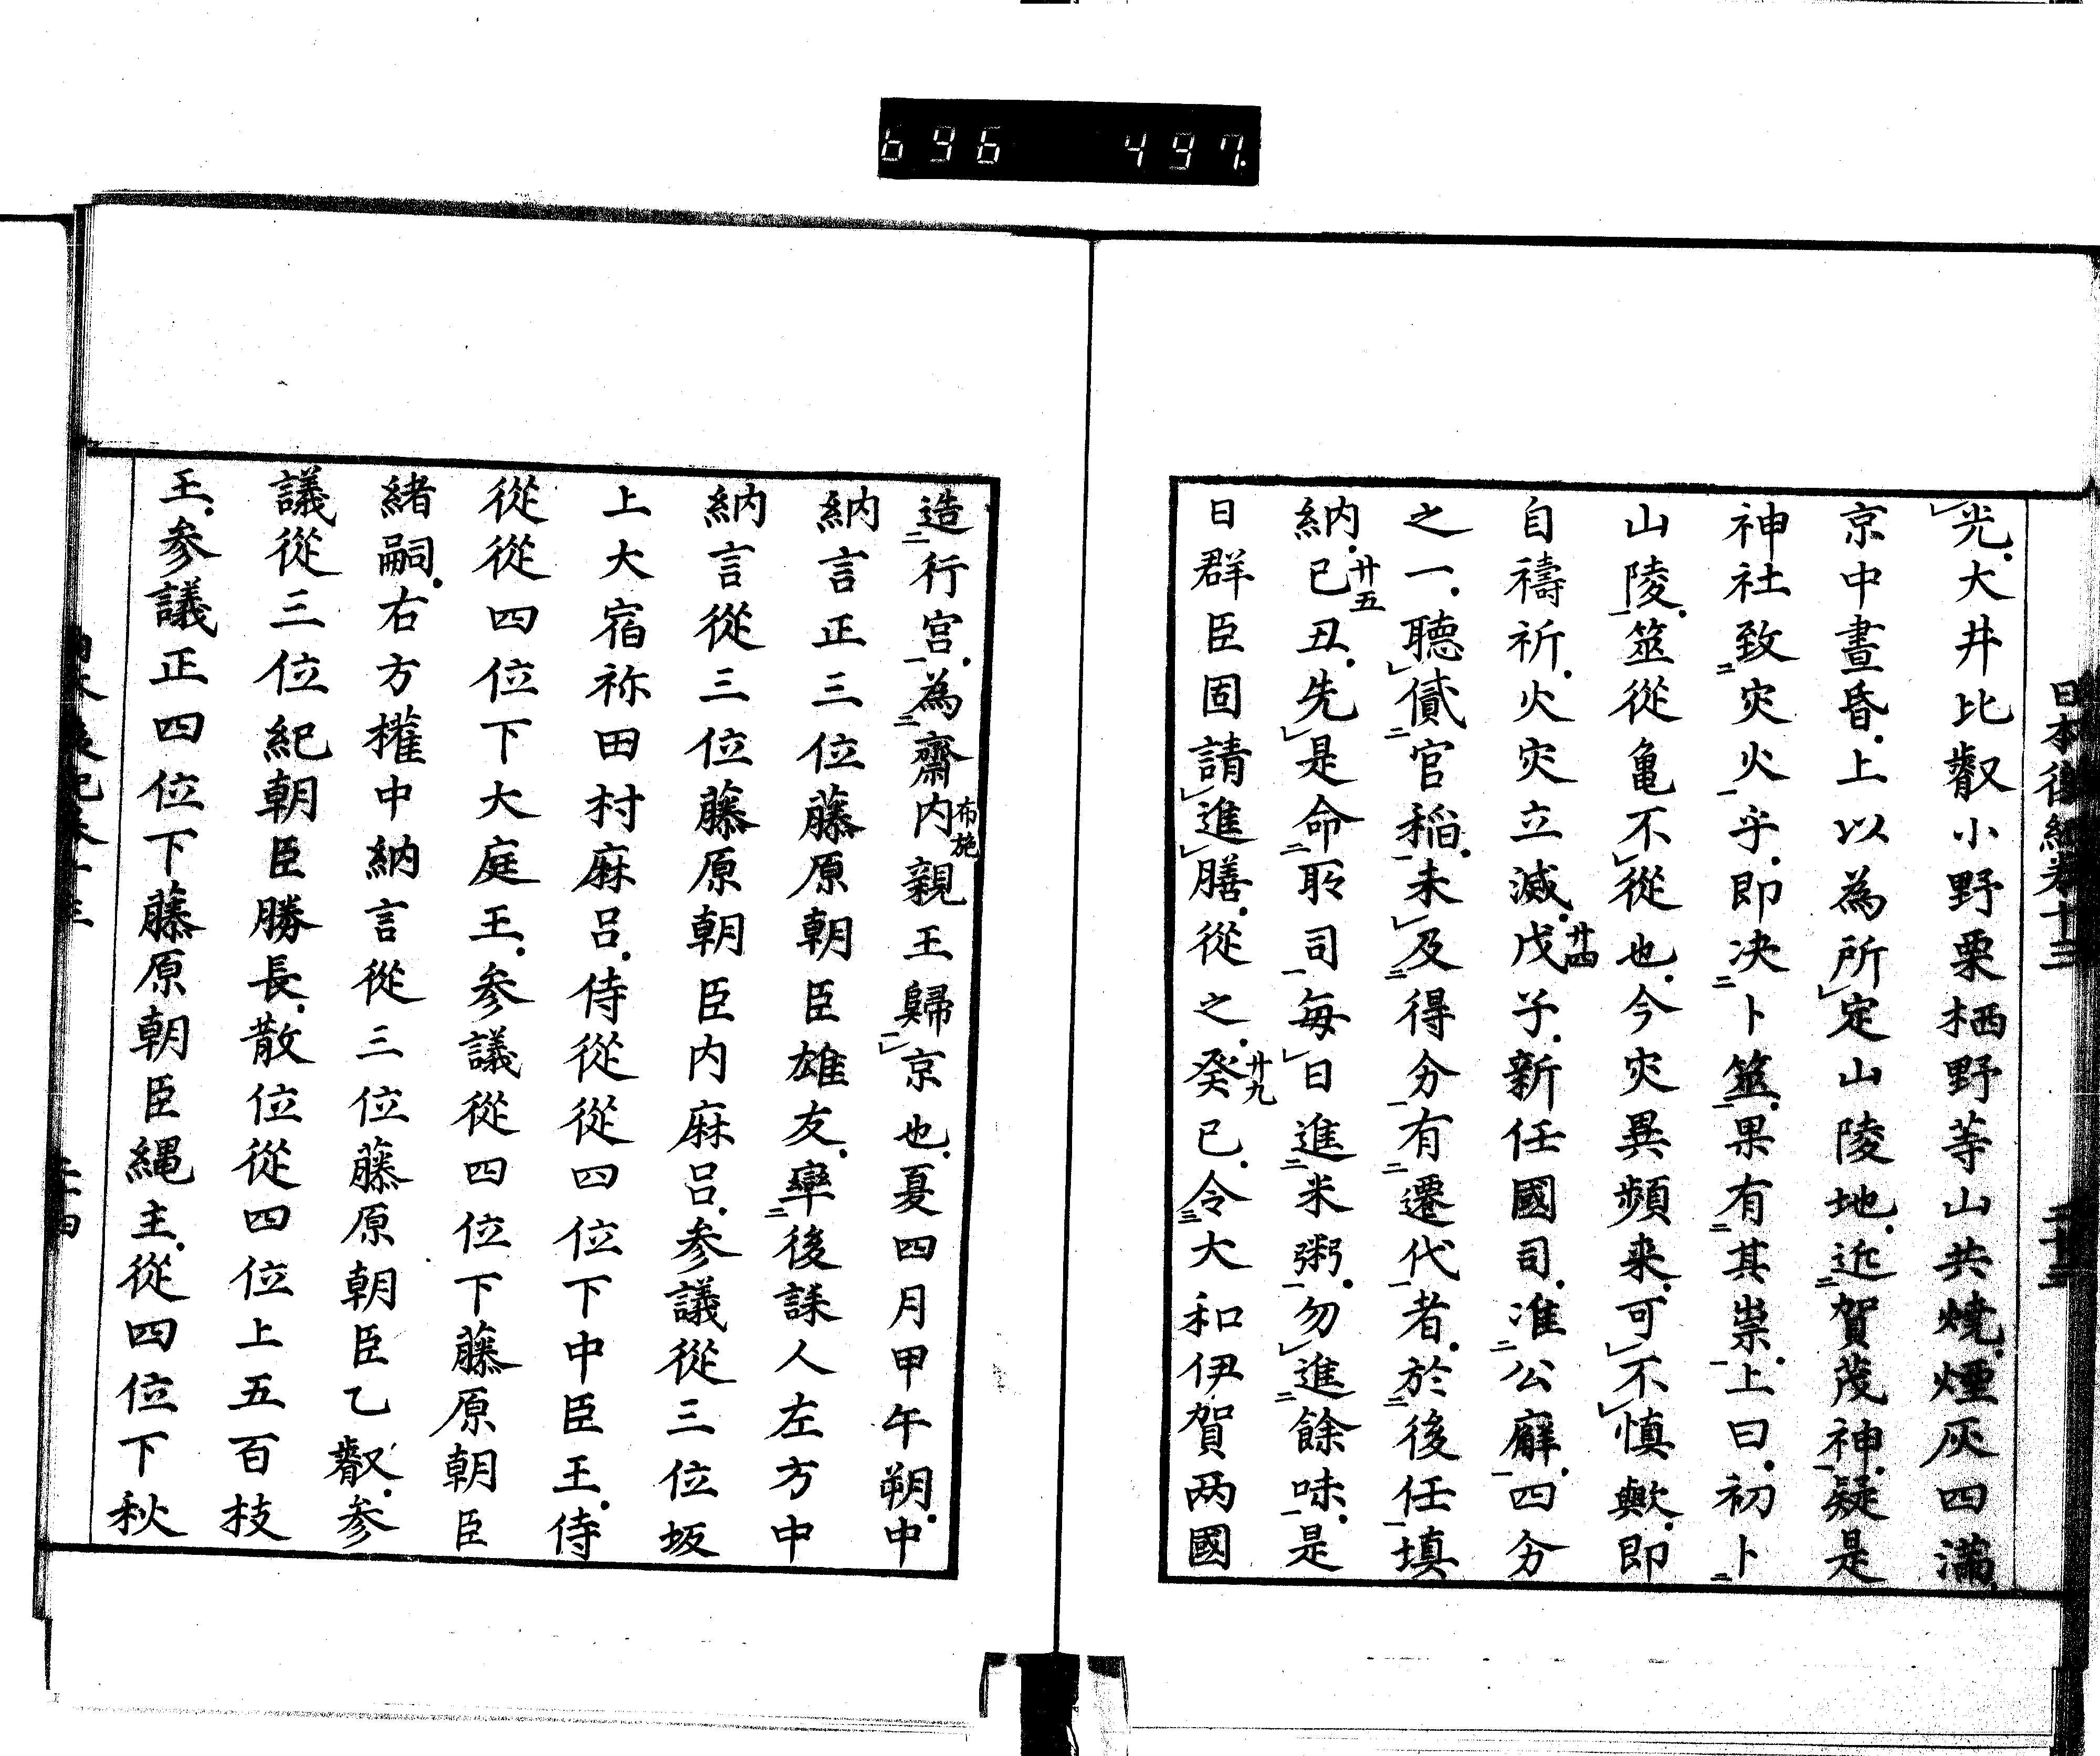 696 497.
日本後紀卷十三 二十三
光。大井比叡小野栗栖野等山共燒。煙灰四滿。
京中晝昏。上以為所定山陵地。近賀茂神。疑是
神社致灾火乎。即决卜筮。果有其祟。上曰。初卜
山陵。筮從亀不從也。今灾異頻来。可不慎歟。即
自禱祈。火灾立滅。戊子。新任國司。准公廨。四分
廿四
之一。聴貸官稲。未及得分有遷代者。於後任填
納。已丑。先是命所司每日進米粥。勿進餘味。是
廿五
日群臣固請進膳。從之。癸巳。令大和伊賀两國
廿九
造行宮。為齋内親王歸京也。夏四月甲午朔。中
布施
納言正三位藤原朝臣雄友。率後誄人左方中
納言從三位藤原朝臣内麻呂。参議從三位坂
上大宿祢田村麻呂。侍從從四位下中臣王。侍
從從四位下大庭王。参議從四位下藤原朝臣
緒嗣。右方權中納言從三位藤原朝臣乙叡。参
議從三位紀朝臣勝長。散位從四位上五百枝
王。参議正四位下藤原朝臣縄主。從四位下秋